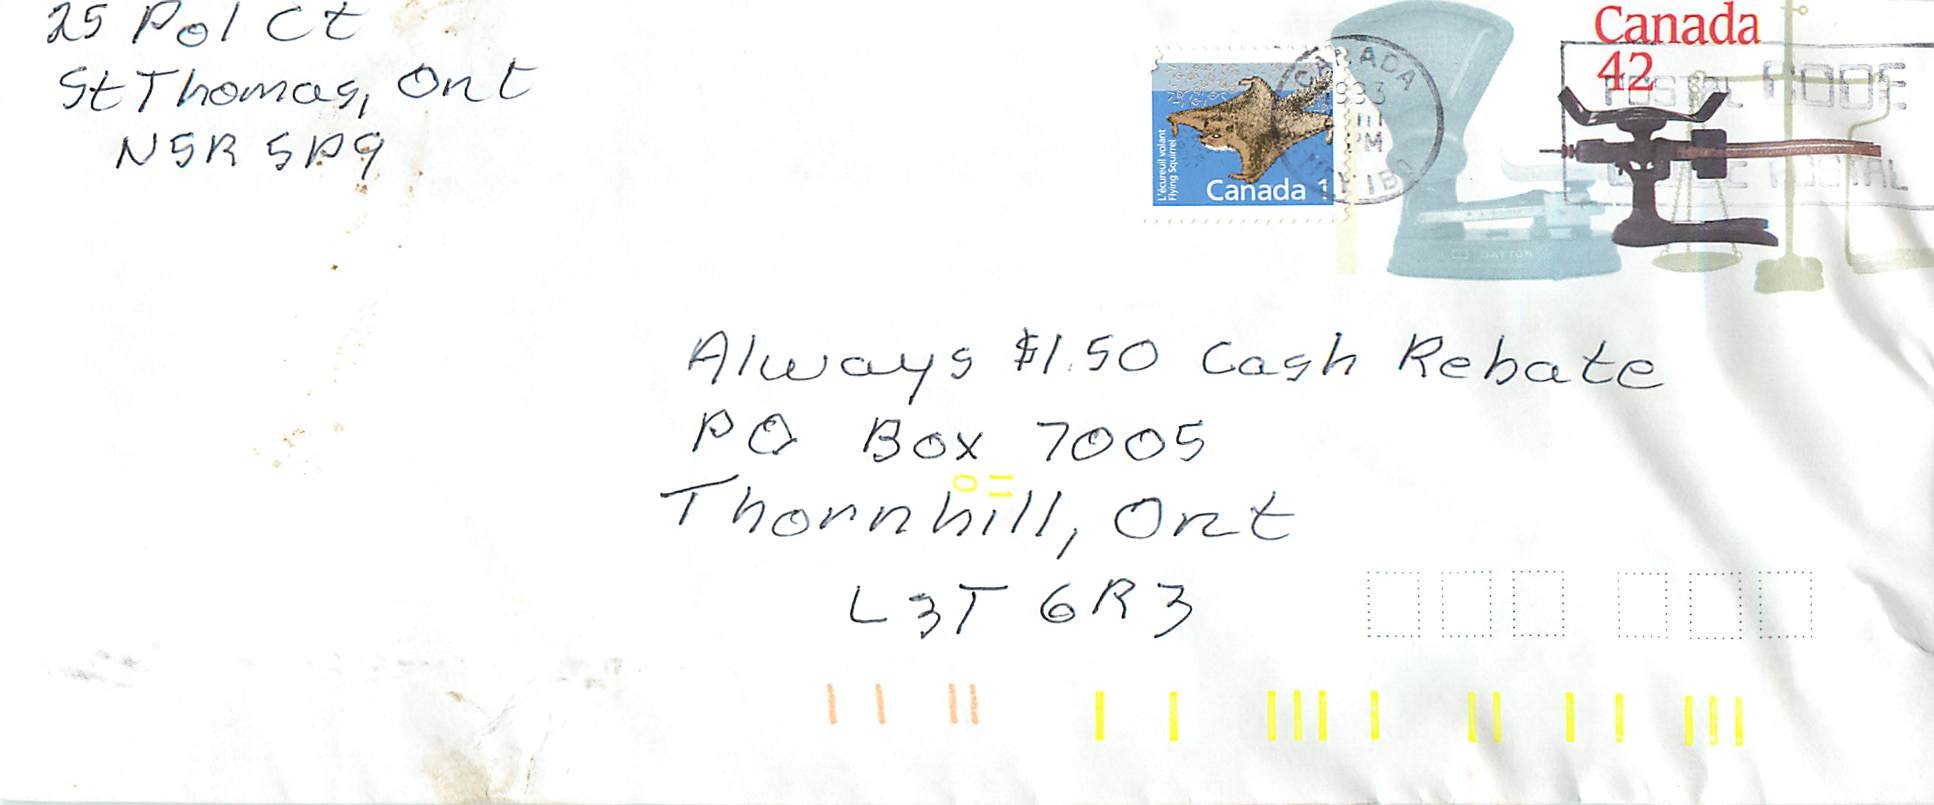 25 Pol Ct
St Thomas, Ont
N5R 5P9
L'écureuil volant
Flying Squirrel
Canada 1
CANADA
1993
PM
Canada
42
POSTAL CODE
CODE POSTAL
DAYTON
Always $1.50 Cash Rebate
PO Box 7005
Thornhill, Ont
L3T 6R3